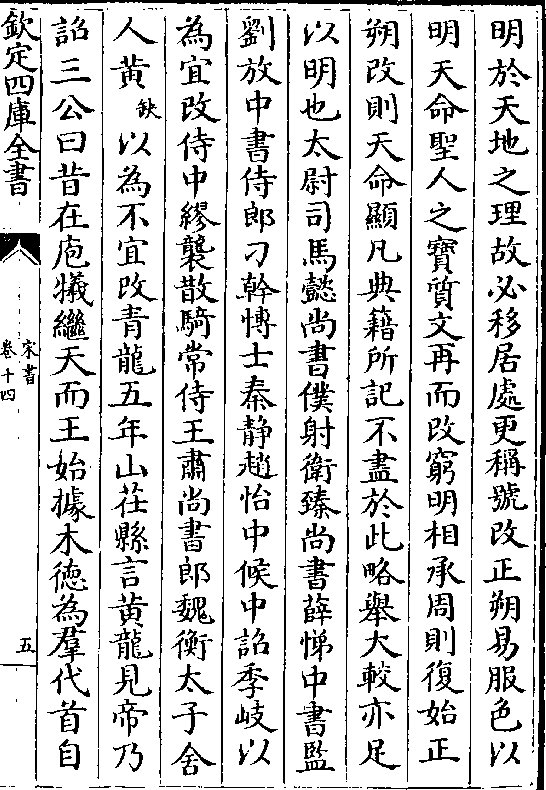 明於天地之理故必移居處更稱號改正朔易服色以
明天命聖人之寶質文再而改窮明相承周則復始正
朔改則天命顯凡典籍所記不盡於此略舉大較亦足
以明也太尉司馬懿尚書僕射衛臻尚書薛悌中書監
劉放中書侍郎刁幹博士秦静趙怡中候中詔季岐以
為宜改侍中繆襲散騎常侍王肅尚書郎魏衡太子舍
人黄缺以為不宜改青龍五年山茌縣言黄龍見帝乃
詔三公曰昔在庖犧繼天而王始據木德為羣代首自
欽定四庫全書
宋書
卷十四
五